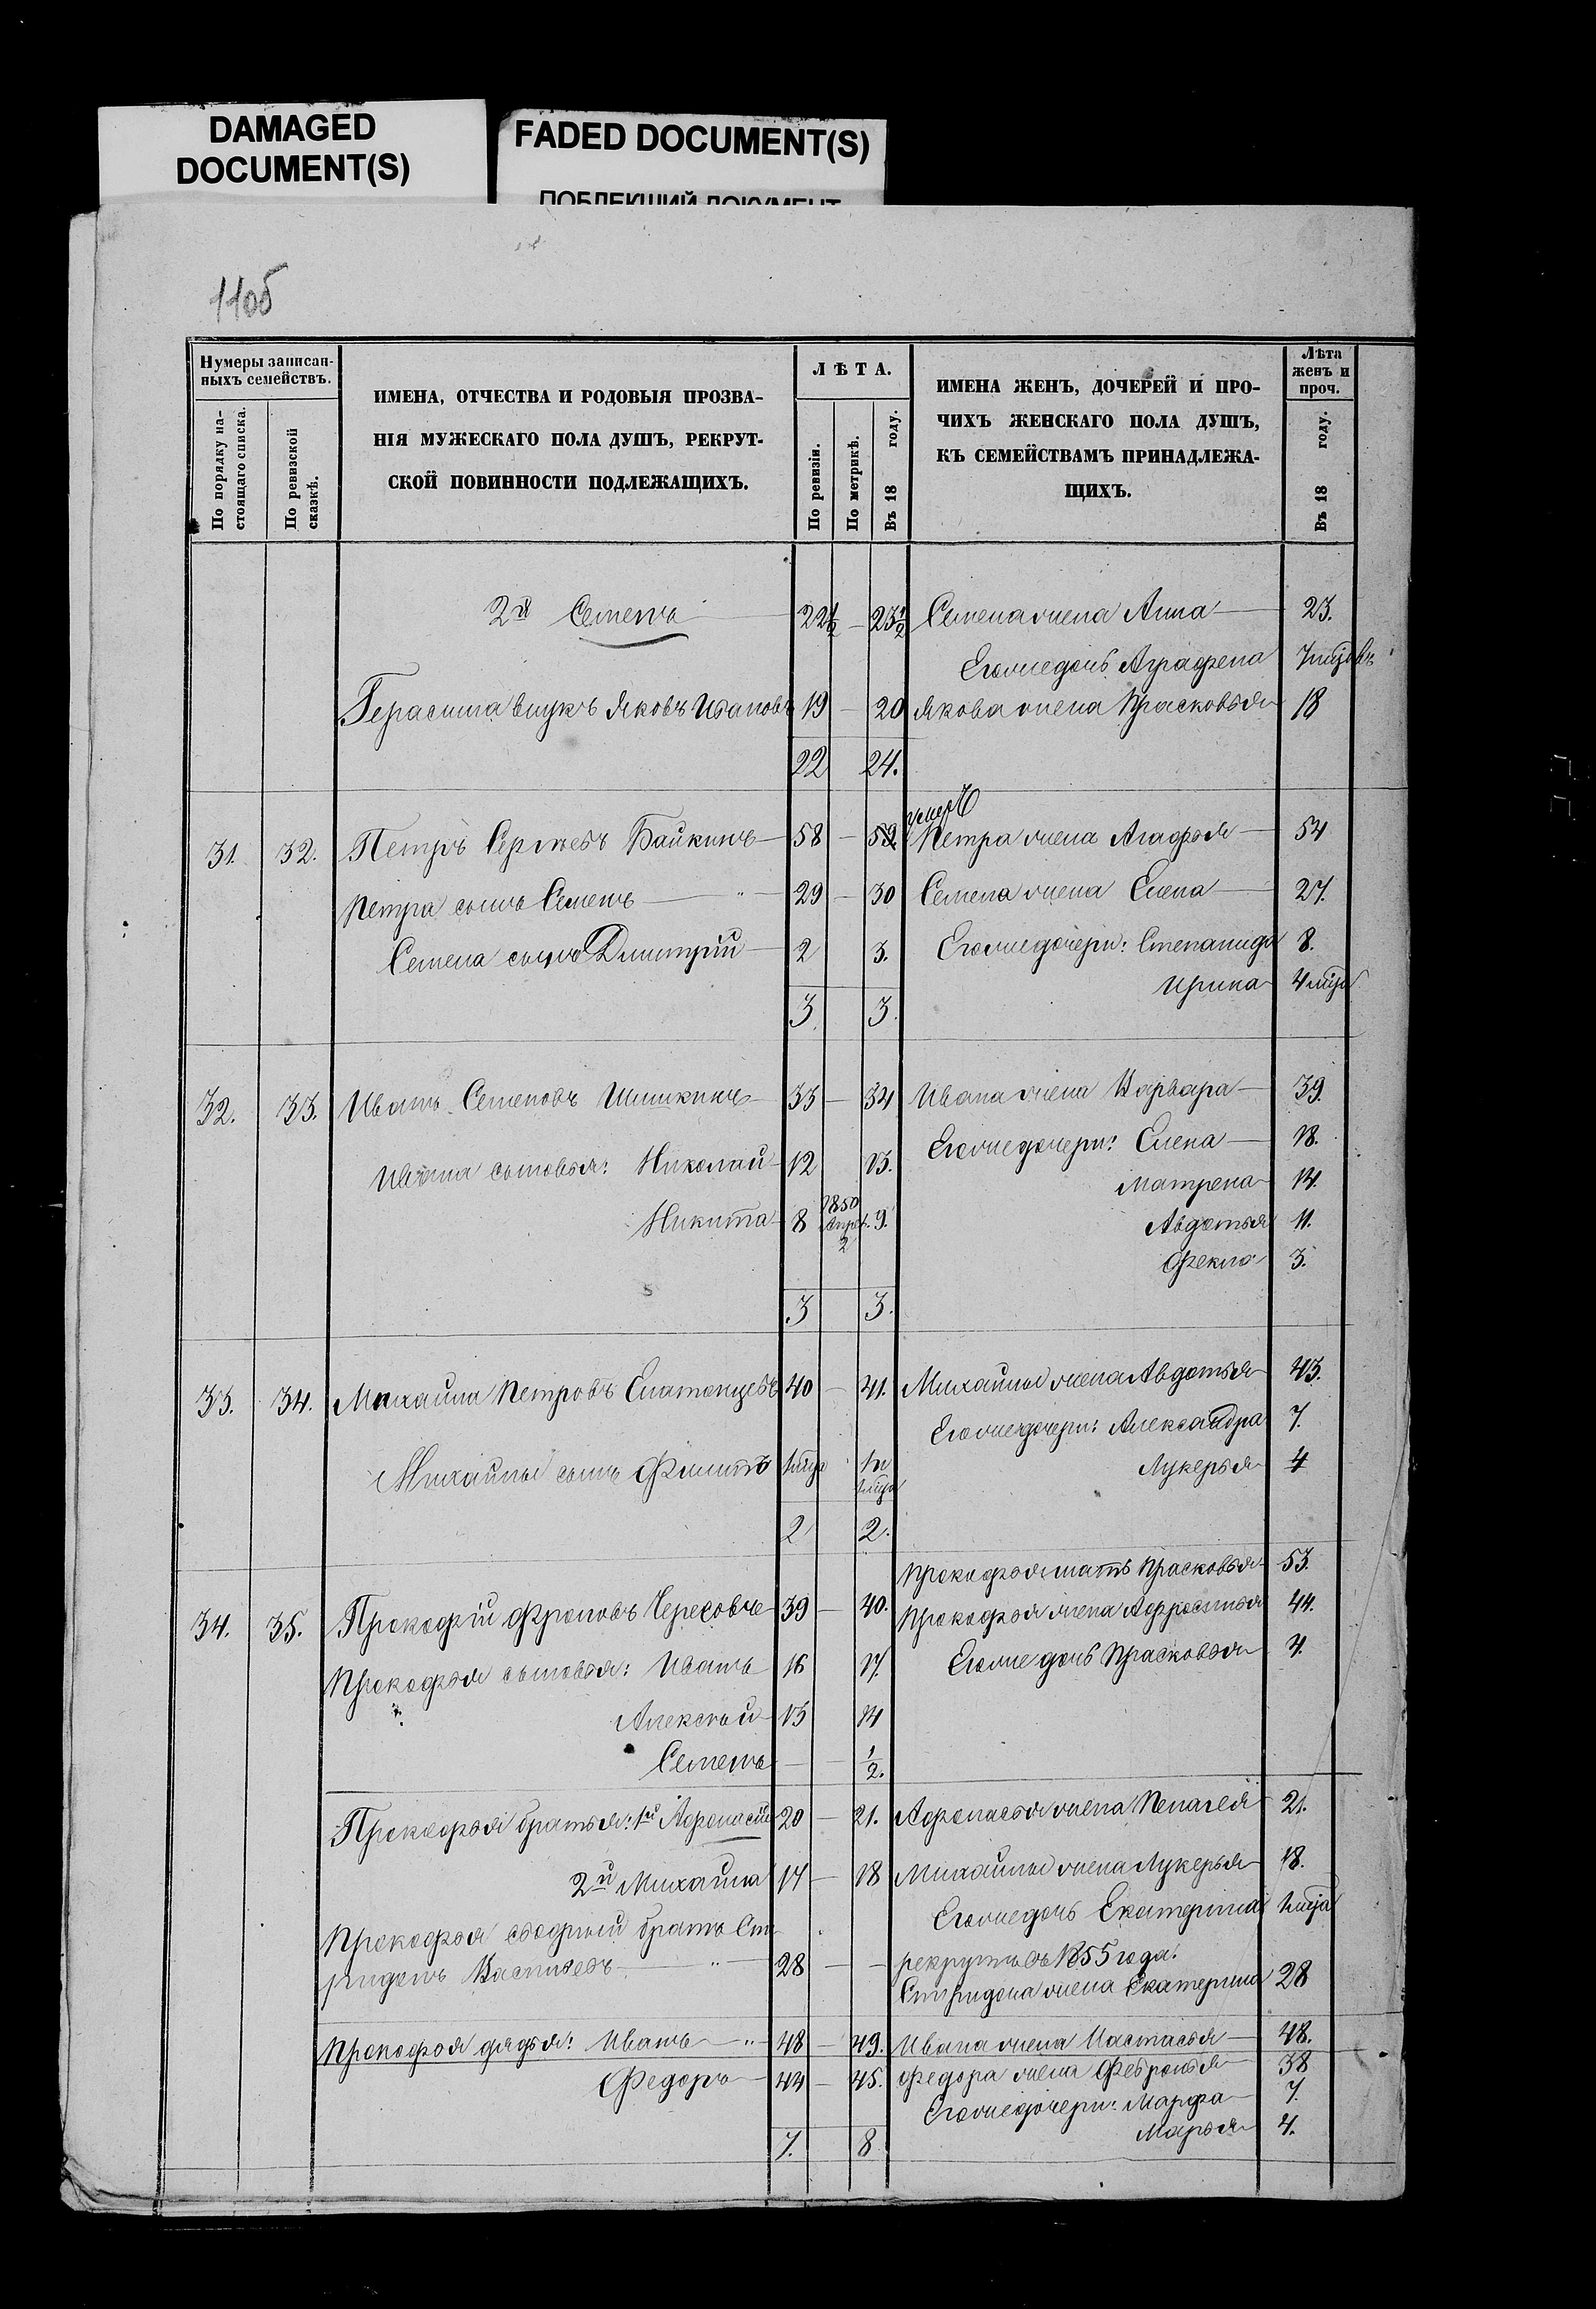 DAMAGED
DOCUMENT(S)
FADED DOCUMENT(S)
ПОБЛЕКШИЙ ДОКУМЕНТ
110б
Нумеры записан-
ныхъ семействъ.
По порядку на-
стоящаго списка.
По ревизской
сказкѣ.
ИМЕНА, ОТЧЕСТВА И РОДОВЫЯ ПРОЗВА-
НІЯ МУЖЕСКАГО ПОЛА ДУШЪ, РЕКРУТ-
СКОЙ ПОВИННОСТИ ПОДЛЕЖАЩИХЪ.
ЛѢТА.
По ревизіи.
По метрикѣ.
Въ 18 году.
ИМЕНА ЖЕНЪ, ДОЧЕРЕЙ И ПРО-
ЧИХЪ ЖЕНСКАГО ПОЛА ДУШЪ,
КЪ СЕМЕЙСТВАМЪ ПРИНАДЛЕЖА-
ЩИХЪ.
Лѣта
женъ и
проч.
Въ 18 году.
2й Семенъ 22½ — 23½ Семена жена Анна 23.
Егоже дочь Аграфена 7 мцовъ
Герасима внукъ Яковъ Ивановъ 19 — 20 Якова жена Прасковья 18
22 24.
умеръ
31. 32. Петръ Сергѣевъ Байкинъ 58 — 59. Петра жена Агафья 54
Петра сынъ Семенъ 29 — 30 Семена жена Елена 27.
Семена сынъ Дмитрій 2 3. Егоже дочери: Степанида 8.
Ирина 4 мца
3 3.
32. 33. Иванъ Семеновъ Шишкинъ 33 — 34 Ивана жена Варвара 39.
Ивана сыновья: Николай 12 13. Егоже дочери: Елена 18.
Матрена 14.
Никита 8 1850 Апрѣл. 2 9. Авдотья 11.
Фекла 3.
3 3.
33. 34. Михайла Петровъ Елатонцевъ 40 — 41. Михайлы жена Авдотья 43.
Егоже дочери: Александра 7.
Михайлы сынъ Филипъ 1 мца 1 и 1 мца Лукерья 4
2 2.
Прокофья мать Прасковья 53.
34. 35. Прокофій Фроловъ 39 — 40. Прокофья жена Афросинья 44.
Прокофья сыновья: Иванъ 16 17. Егоже дочь Прасковья 4.
Алексѣй 13 14
Семенъ — ½.
Прокофья братья: 1й Афонасій 20 — 21. Афонасья жена Пелагея 21.
2й Михайла 17 — 18 Михайлы жена Лукерья 18.
Егоже дочь Екатерина 1 мца
Прокофья сводный братъ Спи-
ридонъ Васильевъ 28 — — рекрутъ съ 1855 года.
Спиридона жена Екатерина 28
Прокофья дядья: Иванъ 48 — 49. Ивана жена Настасья 48.
Федоръ 44 — 45. Федора жена Февронья 38
Егоже дочери: Марфа 7.
Марья 4.
7. 8